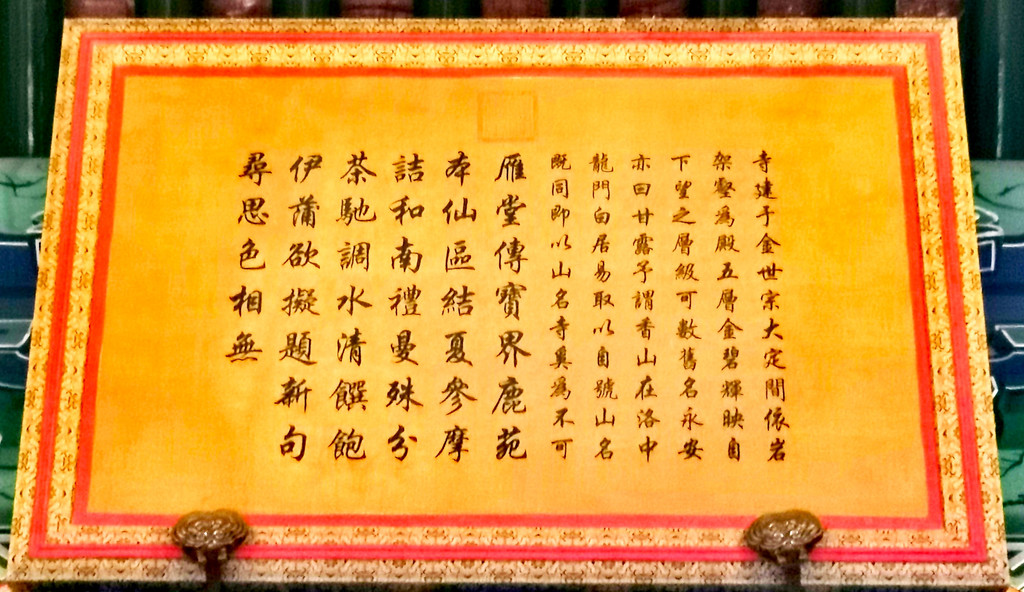 寺建于金世宗大定間依岩
架壑為殿五層金碧輝映自
下望之層級可數舊名永安
亦曰甘露予謂香山在洛中
龍門白居易取以自號山名
既同即以山名寺奚為不可
雁堂傳寶界鹿苑
本仙區結夏參摩
詰和南禮曼殊分
茶馳調水清饌飽
伊蒲欲擬題新句
尋思色相無